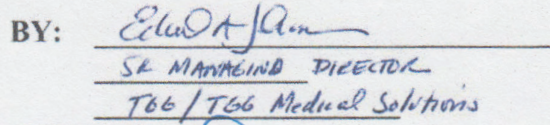 BY:
SR MANAGING DIRECTOR
TGG / TGG Medical Solutions